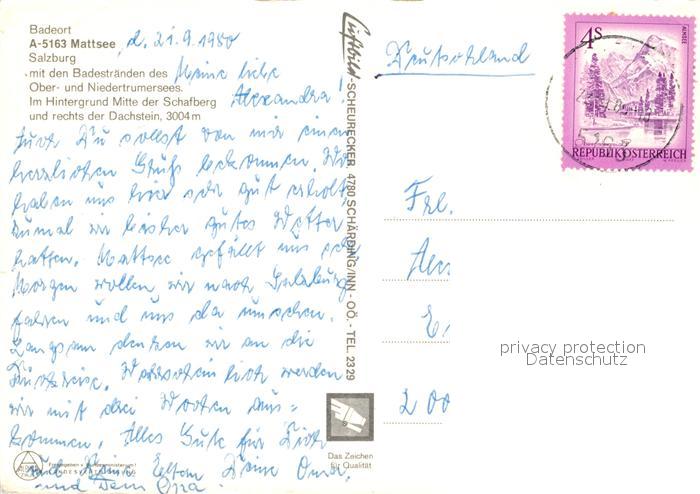 Badeort
A-5163 Mattsee, d. 21.9.1980
Salzburg
mit den Badestränden des Meine liebe
Ober- und Niedertrumersees.
Im Hintergrund Mitte der Schafberg Alexandra!
und rechts der Dachstein, 3004m
Auch Du sollst von mir einen
herzlichen Gruß bekommen. Wir
haben uns hier sehr gut erholt,
zumal wir bisher gutes Wetter
hatten. Mattsee gefällt uns sehr
Morgen wollen wir nach Salzburg
fahren und uns da umsehen.
Langsam denken wir an die
Rückreise. Wahrscheinlich werden
wir mit drei Wochen aus=
kommen. Alles Gute für Dich
und Deine Eltern Deine Oma.
und Dein Opa.
Luftbild-SCHEURECKER 4780 SCHÄRDING/INN - OÖ. - TEL. 2329
Das Zeichen
für Qualität
Deutschland
4 S
REPUBLIK ÖSTERREICH
Frl.
E
200
privacy protection
Datenschutz